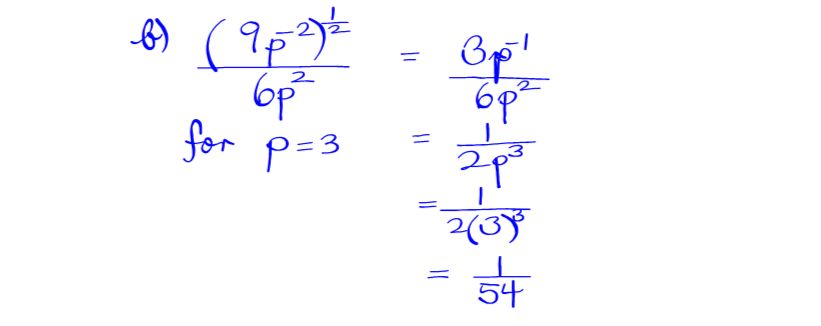 b) (9p⁻²)^½ / 6p² = 3p⁻¹ / 6p²
for p=3 = 1 / 2p³
= 1 / 2(3)³
= 1 / 54